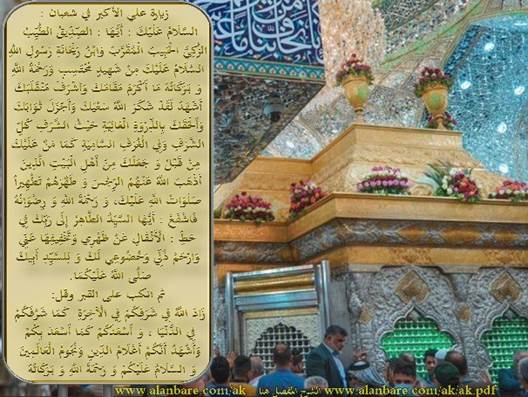 زيارة علي الأكبر في شعبان :
السَّلَامُ عَلَيْكَ : أَيُّهَا : الصِّدِّيقُ الطَّيِّبُ
الزَّكِيُّ الْحَبِيبُ الْمُقَرَّبُ وَابْنُ رَيْحَانَةِ رَسُولِ اللَّهِ
السَّلَامُ عَلَيْكَ مِنْ شَهِيدٍ مُحْتَسِبٍ وَرَحْمَةُ اللَّهِ
وَ بَرَكَاتُهُ مَا أَكْرَمَ مَقَامَكَ وَأَشْرَفَ مُنْقَلَبَكَ
أَشْهَدُ لَقَدْ شَكَرَ اللَّهُ سَعْيَكَ وَأَجْزَلَ ثَوَابَكَ
وَأَلْحَقَكَ بِالذِّرْوَةِ الْعَالِيَةِ حَيْثُ الشَّرَفُ كُلُّ
الشَّرَفِ وَفِي الْغُرَفِ السَّامِيَةِ كَمَا مَنَّ عَلَيْكَ
مِنْ قَبْلُ وَ جَعَلَكَ مِنْ أَهْلِ الْبَيْتِ الَّذِينَ
أَذْهَبَ اللَّهُ عَنْهُمُ الرِّجْسَ وَ طَهَّرَهُمْ تَطْهِيراً
صَلَوَاتُ اللَّهِ عَلَيْكَ، وَ رَحْمَةُ اللَّهِ وَ رِضْوَانُهُ
فَاشْفَعْ : أَيُّهَا السَّيِّدُ الطَّاهِرُ إِلَى رَبِّكَ فِي
حَطِّ : الْأَثْقَالِ عَنْ ظَهْرِي وَتَخْفِيفِهَا عَنِّي
وَارْحَمْ ذُلِّي وَخُضُوعِي لَكَ وَ لِلسَّيِّدِ أَبِيكَ
صَلَّى اللَّهُ عَلَيْكُمَا.
ثم انكب على القبر وقل:
زَادَ اللَّهُ فِي شَرَفِكُمْ فِي الْآخِرَةِ كَمَا شَرَّفَكُمْ
فِي الدُّنْيَا ، وَ أَسْعَدَكُمْ كَمَا أَسْعَدَ بِكُمْ
وَأَشْهَدُ أَنَّكُمْ أَعْلَامُ الدِّينِ وَنُجُومُ الْعَالَمِينَ
وَ السَّلَامُ عَلَيْكُمْ وَ رَحْمَةُ اللَّهِ وَ بَرَكَاتُهُ
www.alanbare.com/ak الشرح المفصل هنا www.alanbare.com/ak/ak.pdf